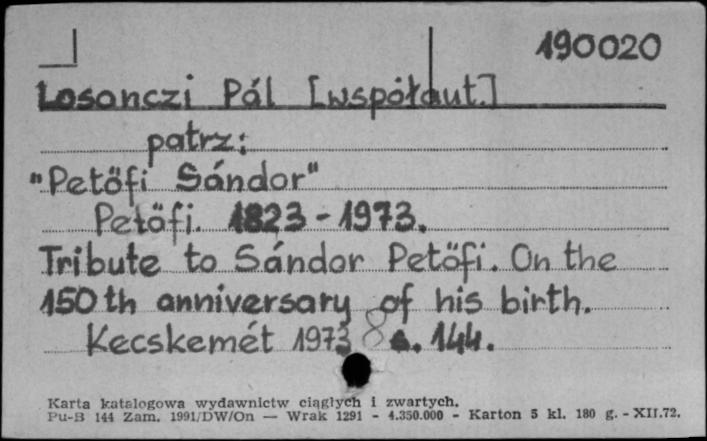 190020
Losonczi Pál [współaut.]
patrz:
"Petöfi Sándor"
Petöfi. 1823-1973.
Tribute to Sándor Petöfi. On the
150th anniversary of his birth.
Kecskemét 1973 8 s. 144.
Karta katalogowa wydawnictw ciągłych i zwartych.
Pu-B 144 Zam. 1991/DW/On — Wrak 1291 - 4.350.000 - Karton 5 kl. 180 g. - XII.72.